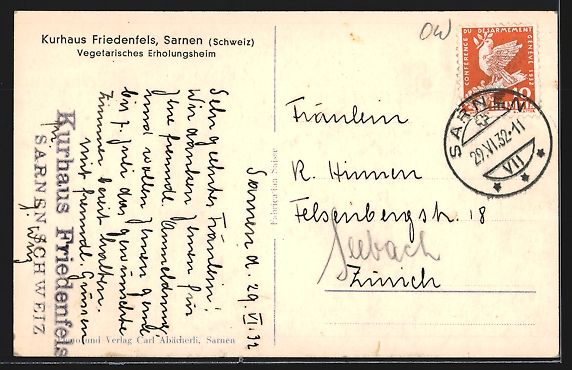 Kurhaus Friedenfels, Sarnen (Schweiz)
Vegetarisches Erholungsheim
OW
CONFÉRENCE DU DÉSARMEMENT GENÈVE 1932
10
HELVETIA
SARNEN
29.VI.32-11
VII
Sarnen d. 29. VI. 32
Sehr geehrtes Fräulein!
Wir danken Ihnen für
Ihre freundl. Anmeldung
und wollen Ihnen gerne
bis 7. Juli das gewünschte
Zimmer bereit halten.
Mit freundl. Grüssen
Kurhaus Friedenfels
SARNEN SCHWEIZ
Fräulein
R. Hinnen
Felsenbergstr. 18
Seebach
Zürich
und Verlag Carl Abächerli, Sarnen